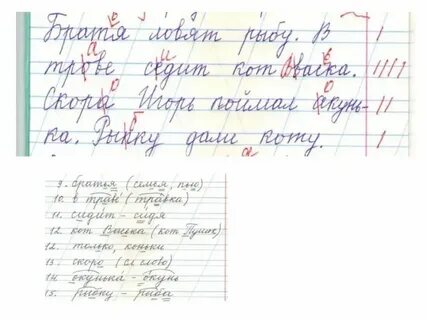 Братя ловят рыбу. В |
трове седит кот васка. ||||
Скора Игорь поймал акунь- ||
ка. Рыпку дали коту. |
9. братья (семья, пью)
10. в траве (травка)
11. сидит - сидя
12. кот Васька (кот Пушок)
12. только, коньки
13. скоро (сл слово)
14. окунька - окунь
15. рыбку - рыба